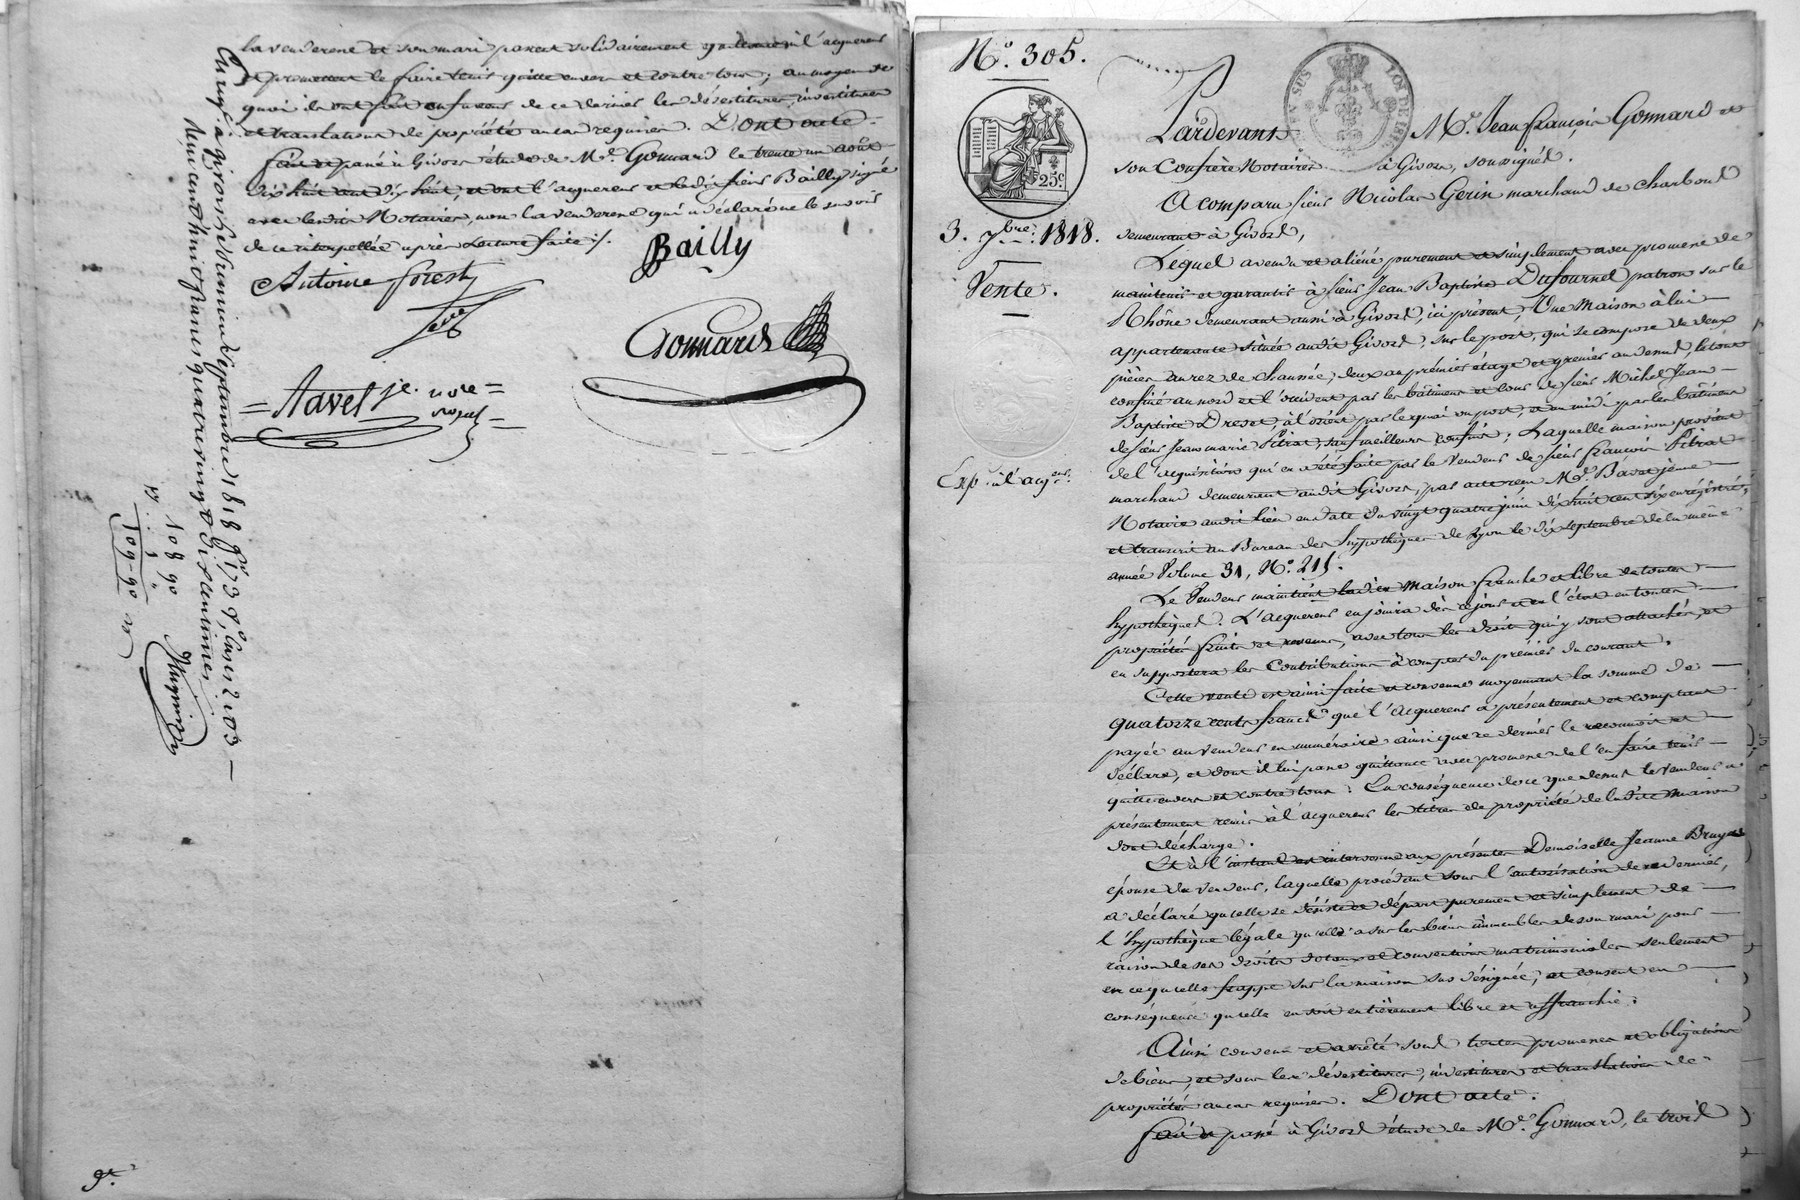 la venderesse et son mari passent solidairement quittance à l'acquereur
et promettent le faire tenir quitte envers et contre tous; au moyen de
quoi ils ont fait en faveur de ce dernier les dévestitures, investitures
et translations de propriété au cas requises. Dont acte.
fait et passé à Givors étude de Me. Gonnard le trente un août
dix huit cent dix huit, et ont l'acquereur et ledit sieur Bailly signé
avec lesdits Notaires, non la venderesse qui a déclaré ne le savoir
de ce interpellée après Lecture faite ./.
Antoine forest
Bailly
Gonnard
= Aavel je. nore =
Enregé. à givors le deux septembre 1818 fo. 139 Vo. Cases 2 et 3 —
Reçu cent huit francs quatre vingt dix centimes
108 90
109-90
9e.
No. 305.
25c.
3. 7bre. 1818.
Vente.
Exp. à l'acqeur.
Pardevant Me. Jean françois Gonnard et
son Confrère Notaires à Givors, soussignés.
A comparu sieur Nicolas Gerin marchand de charbons
demeurant à Givors,
Lequel a vendu et aliéné purement et simplement avec promesse de
maintenir et garantir à sieur Jean Baptiste Dufournel patron sur le
Rhône demeurant aussi à Givors, ici présent Une Maison à lui
appartenante située audit Givors, sur le port, qui se compose de deux
pièces au rez de chaussée, deux au premier étage et grenier au dessus, le tout
confiné au nord et l'occident par les bâtimens et cour de sieur Michel Jean
Baptiste Drevet, à l'orient par le quai ou port, et au midi par les bâtimens
de sieur Jean marie Pitrat, sauf meilleurs confins; Laquelle maison provient
de l'acquisition qui en a été faite par le Vendeur de sieur françois Pitrat
marchand demeurant audit Givors, par acte reçu Me. Bavet jeune
Notaire audit lieu en date du vingt quatre juin dix huit cent six enrégistré,
et transcrit au Bureau des hypothèques de Lyon le dix septembre de la même
année Volume 31, No. 215.
Le Vendeur maintient ladite Maison franche et libre de toutes
hypothèques. L'acquereur en jouira dès ce jour et en l'état en toute
propriété fruits et revenus, avec tous les droits qui y sont attachés, et
en supportera les Contributions à compter du premier du courant.
Cette vente est ainsi faite et convenue moyennant la somme de
quatorze cents francs que l'acquereur a présentement et comptant
payée au vendeur en numéraire ainsi que ce dernier le reconnoit et
déclare, et dont il lui passe quittance avec promesse de l'en faire tenir
quitte envers et contre tous: En conséquence de ce que dessus le Vendeur a
présentement remis à l'acquereur les titres de propriété de ladite maison
dont décharge.
Et à l'instant est intervenue aux présentes Demoiselle Jeanne Bruyas
épouse du vendeur, laquelle procédant sous l'autorisation de ce dernier,
a déclaré qu'elle se désiste et départ purement et simplement de
l'hypothèque légale qu'elle a sur les biens immeubles de son mari pour
raison de ses droits dotaux et conventions matrimoniales seulement
en ce qu'elle frappe sur la maison sus désignée, et consent en
conséquence qu'elle en soit entièrement libre et affranchie.
Ainsi convenu et arrêté sous toutes promesses et obligations
de biens, et sous les dévestitures, investitures et translations de
propriétés au cas requises. Dont acte.
fait et passé à Givors étude de Me. Gonnard, le trois